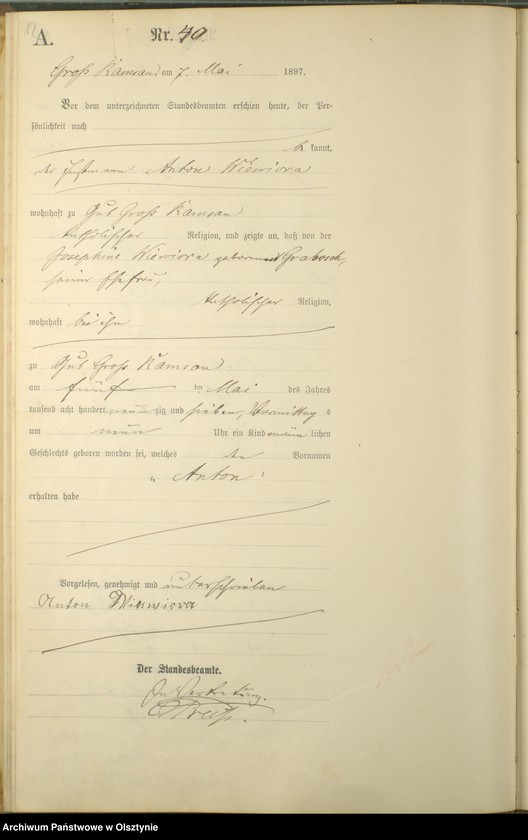 A.
Nr. 40.
Groß Kamsau am 7. Mai 1897.
Vor dem unterzeichneten Standesbeamten erschien heute, der Per-
sönlichkeit nach
be kannt,
der Anton Wiewiora
wohnhaft zu Gut Groß Kamsau
katholischer Religion, und zeigte an, daß von der
Josephine Wiewiora geborenen Grabosch,
seiner Ehefrau,
katholischer Religion,
wohnhaft bei ihm
zu Gut Groß Kamsau
am fünf ten Mai des Jahres
tausend acht hundert neun zig und sieben, Vormittag s
um neun Uhr ein Kind männ lichen
Geschlechts geboren worden sei, welches den Vornamen
„ Anton "
erhalten habe
Vorgelesen, genehmigt und unterschrieben
Anton Wiewiora
Der Standesbeamte.
In Vertretung.